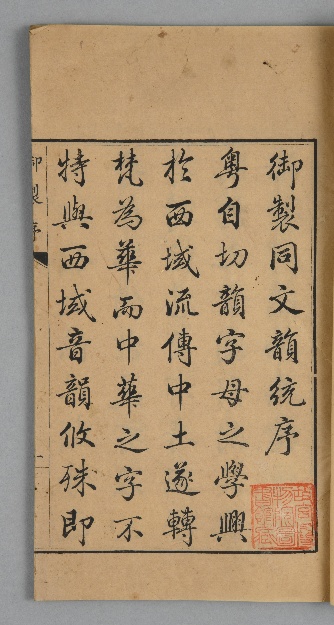 御製同文韻統序
粤自切韻字母之學興
於西域流傳中土遂轉
梵為華而中華之字不
特與西域音韻攸殊即
御製序